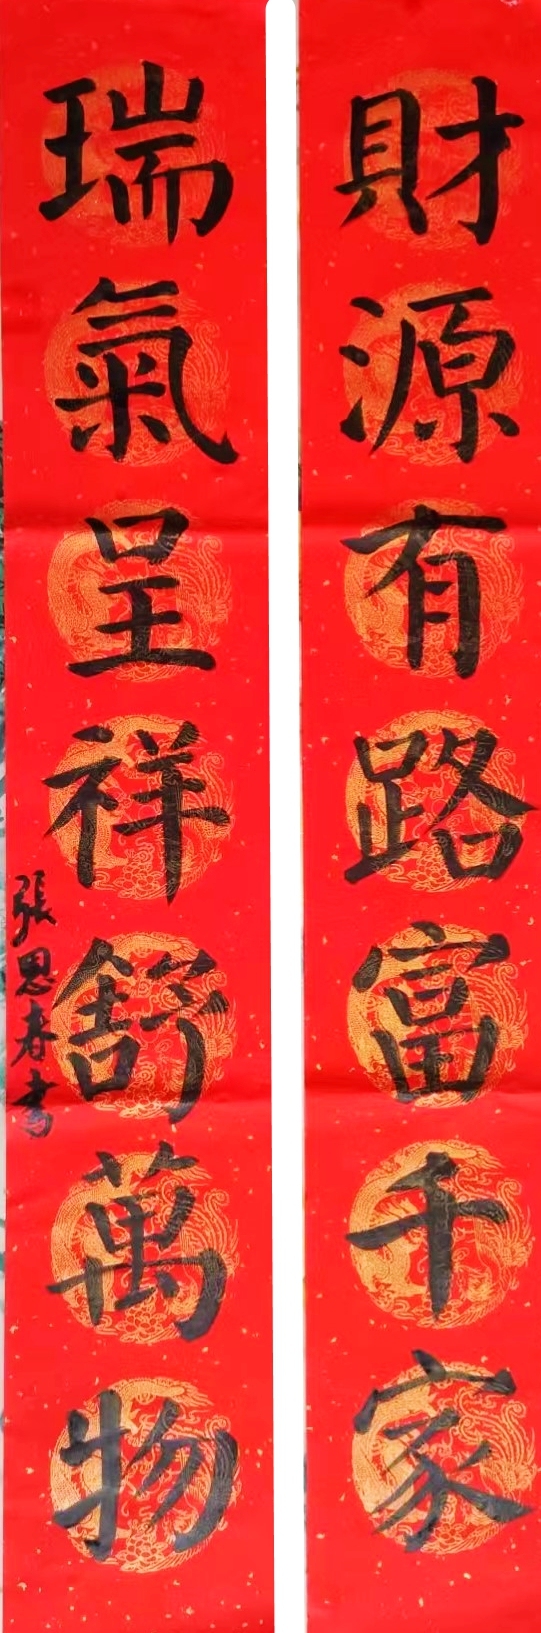 財源有路富千家
瑞氣呈祥舒萬物
張思春書